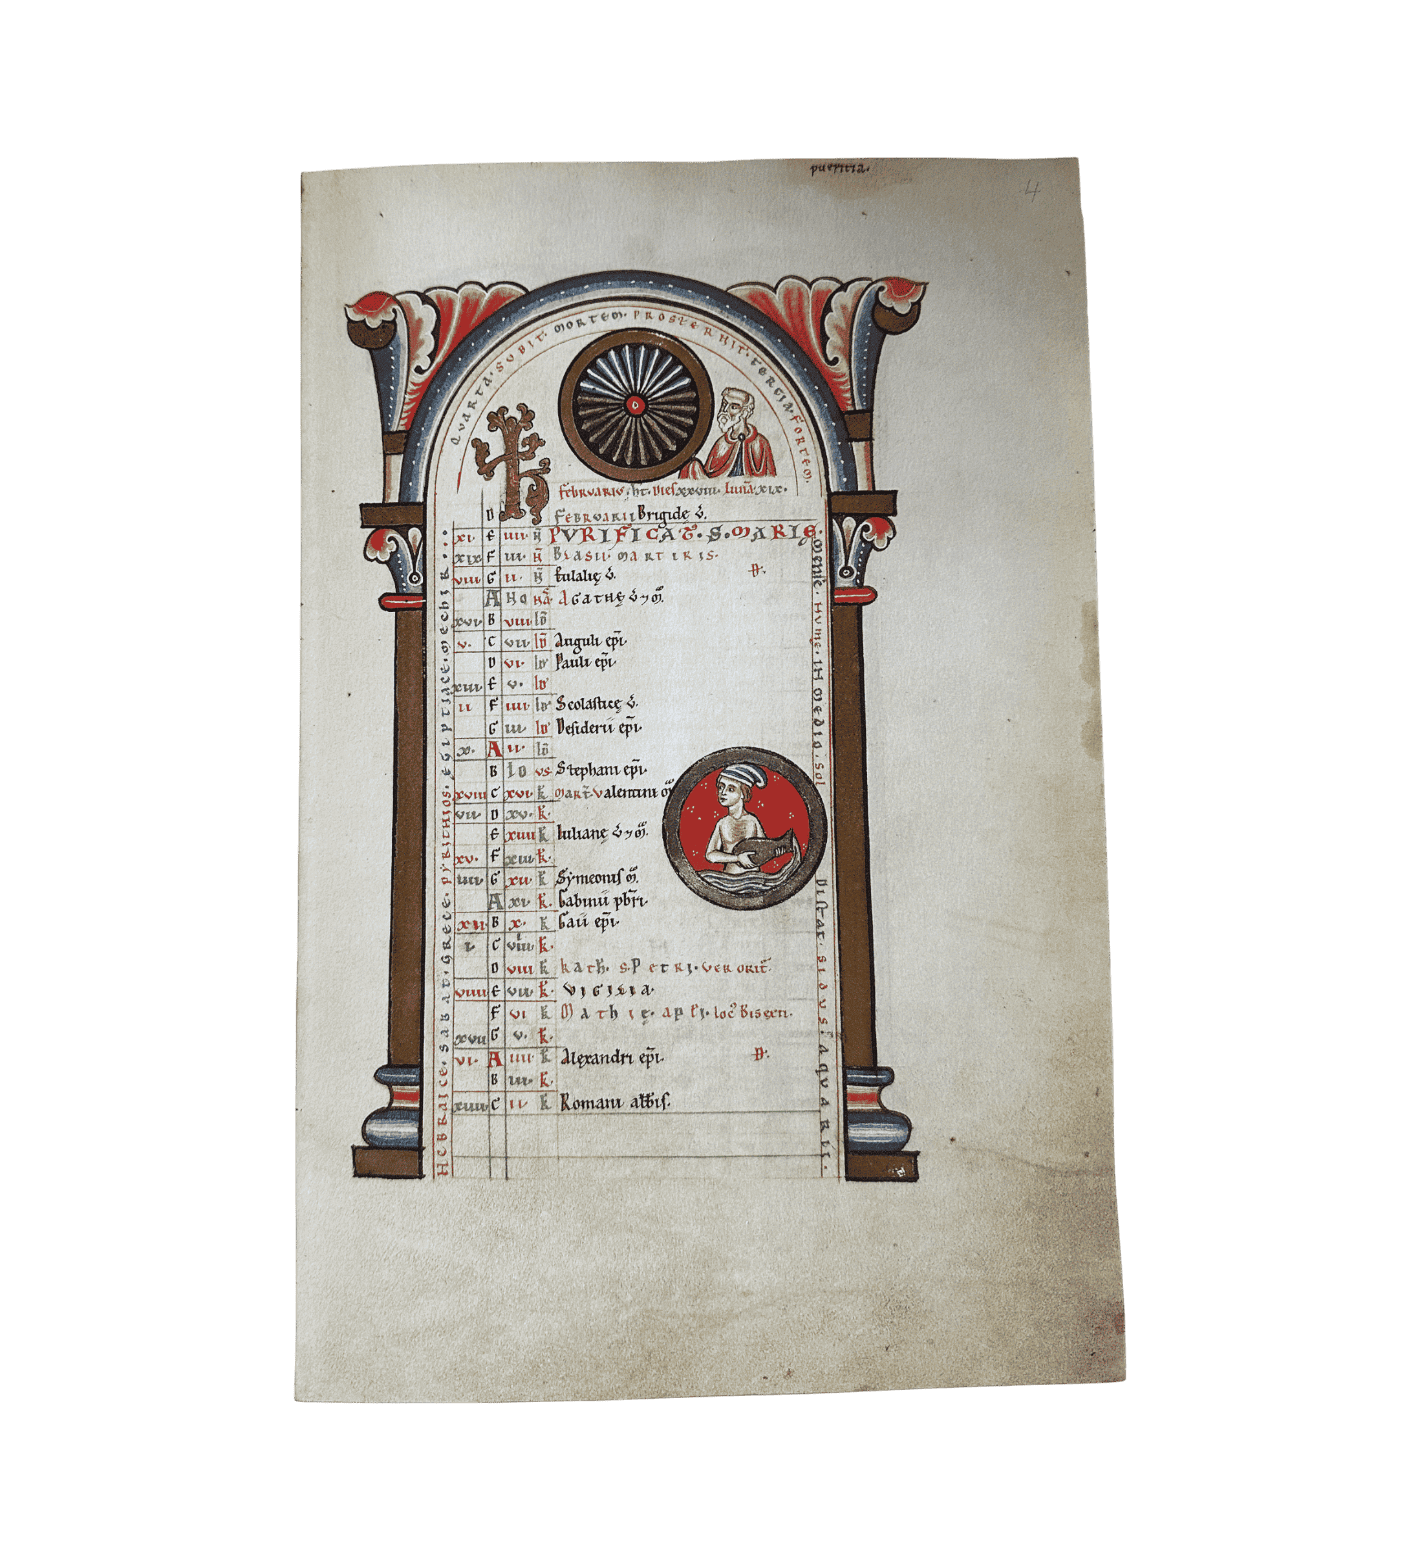 pueritia.
4
QUARTA · SUBIT · MORTEM · PROSTERNIT · TERTIA · FORTEM
FEBRUARIUS · ht · DIES xxviii · LUNA xix ·
D FEBRUARII Brigide v̄.
xi · E iiii · N̄ PURIFICAT̄ · S · MARIE
xix F iii · N̄ BLASII · MARTIRIS ·
viii G ii · N̄ Eulalię v̄. D̄.
A NO NA AGATHĘ v̄ ⁊ m̄.
xvi B viii ID̄
v · C vii · ID̄ Anguli ep̄i ·
D vi · ID̄ Pauli ep̄i ·
xiii E v · ID̄
ii F iiii · ID̄ Scolasticę v̄.
G iii · ID̄ Desiderii ep̄i ·
x · A ii · ID̄
B ID US Stephani ep̄i ·
xviii C xvi · k MART̄ Valentini m̄
vii · D xv · k ·
E xiiii k Iulianę v̄ ⁊ m̄.
xv · F xiii · k ·
iiii · G xii · k Symeonis m̄.
A xi · k · Gabinii pb̄ri ·
xii B x · k Gaii ep̄i ·
i · C viiii k ·
D viii k kath · S · PETRI · VER ORIT̄ ·
viiii E vii · k · VIGILIA ·
F vi k MATHIĘ · APLI · loc' Bisexti ·
xvii G v · k ·
vi · A iiii k Alexandri ep̄i · D̄ ·
B iii · k ·
xiiii C ii · k Romani abb̄is.
HEBRAICE · SABAT · GRECE · PYRITHIOS · EGIPTIACE · MECHIR ·
MENSE · NUMĘ · IN MEDIO · SOL
DISTAT · SIDUS · AQUARII ·